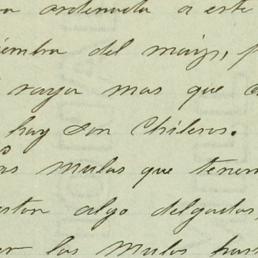 a ordenada a este
siembra del maiz, p
raya mas que
hay son Chileros.
as mulas que tenem
estan algo delgadas,
ar las mulas par